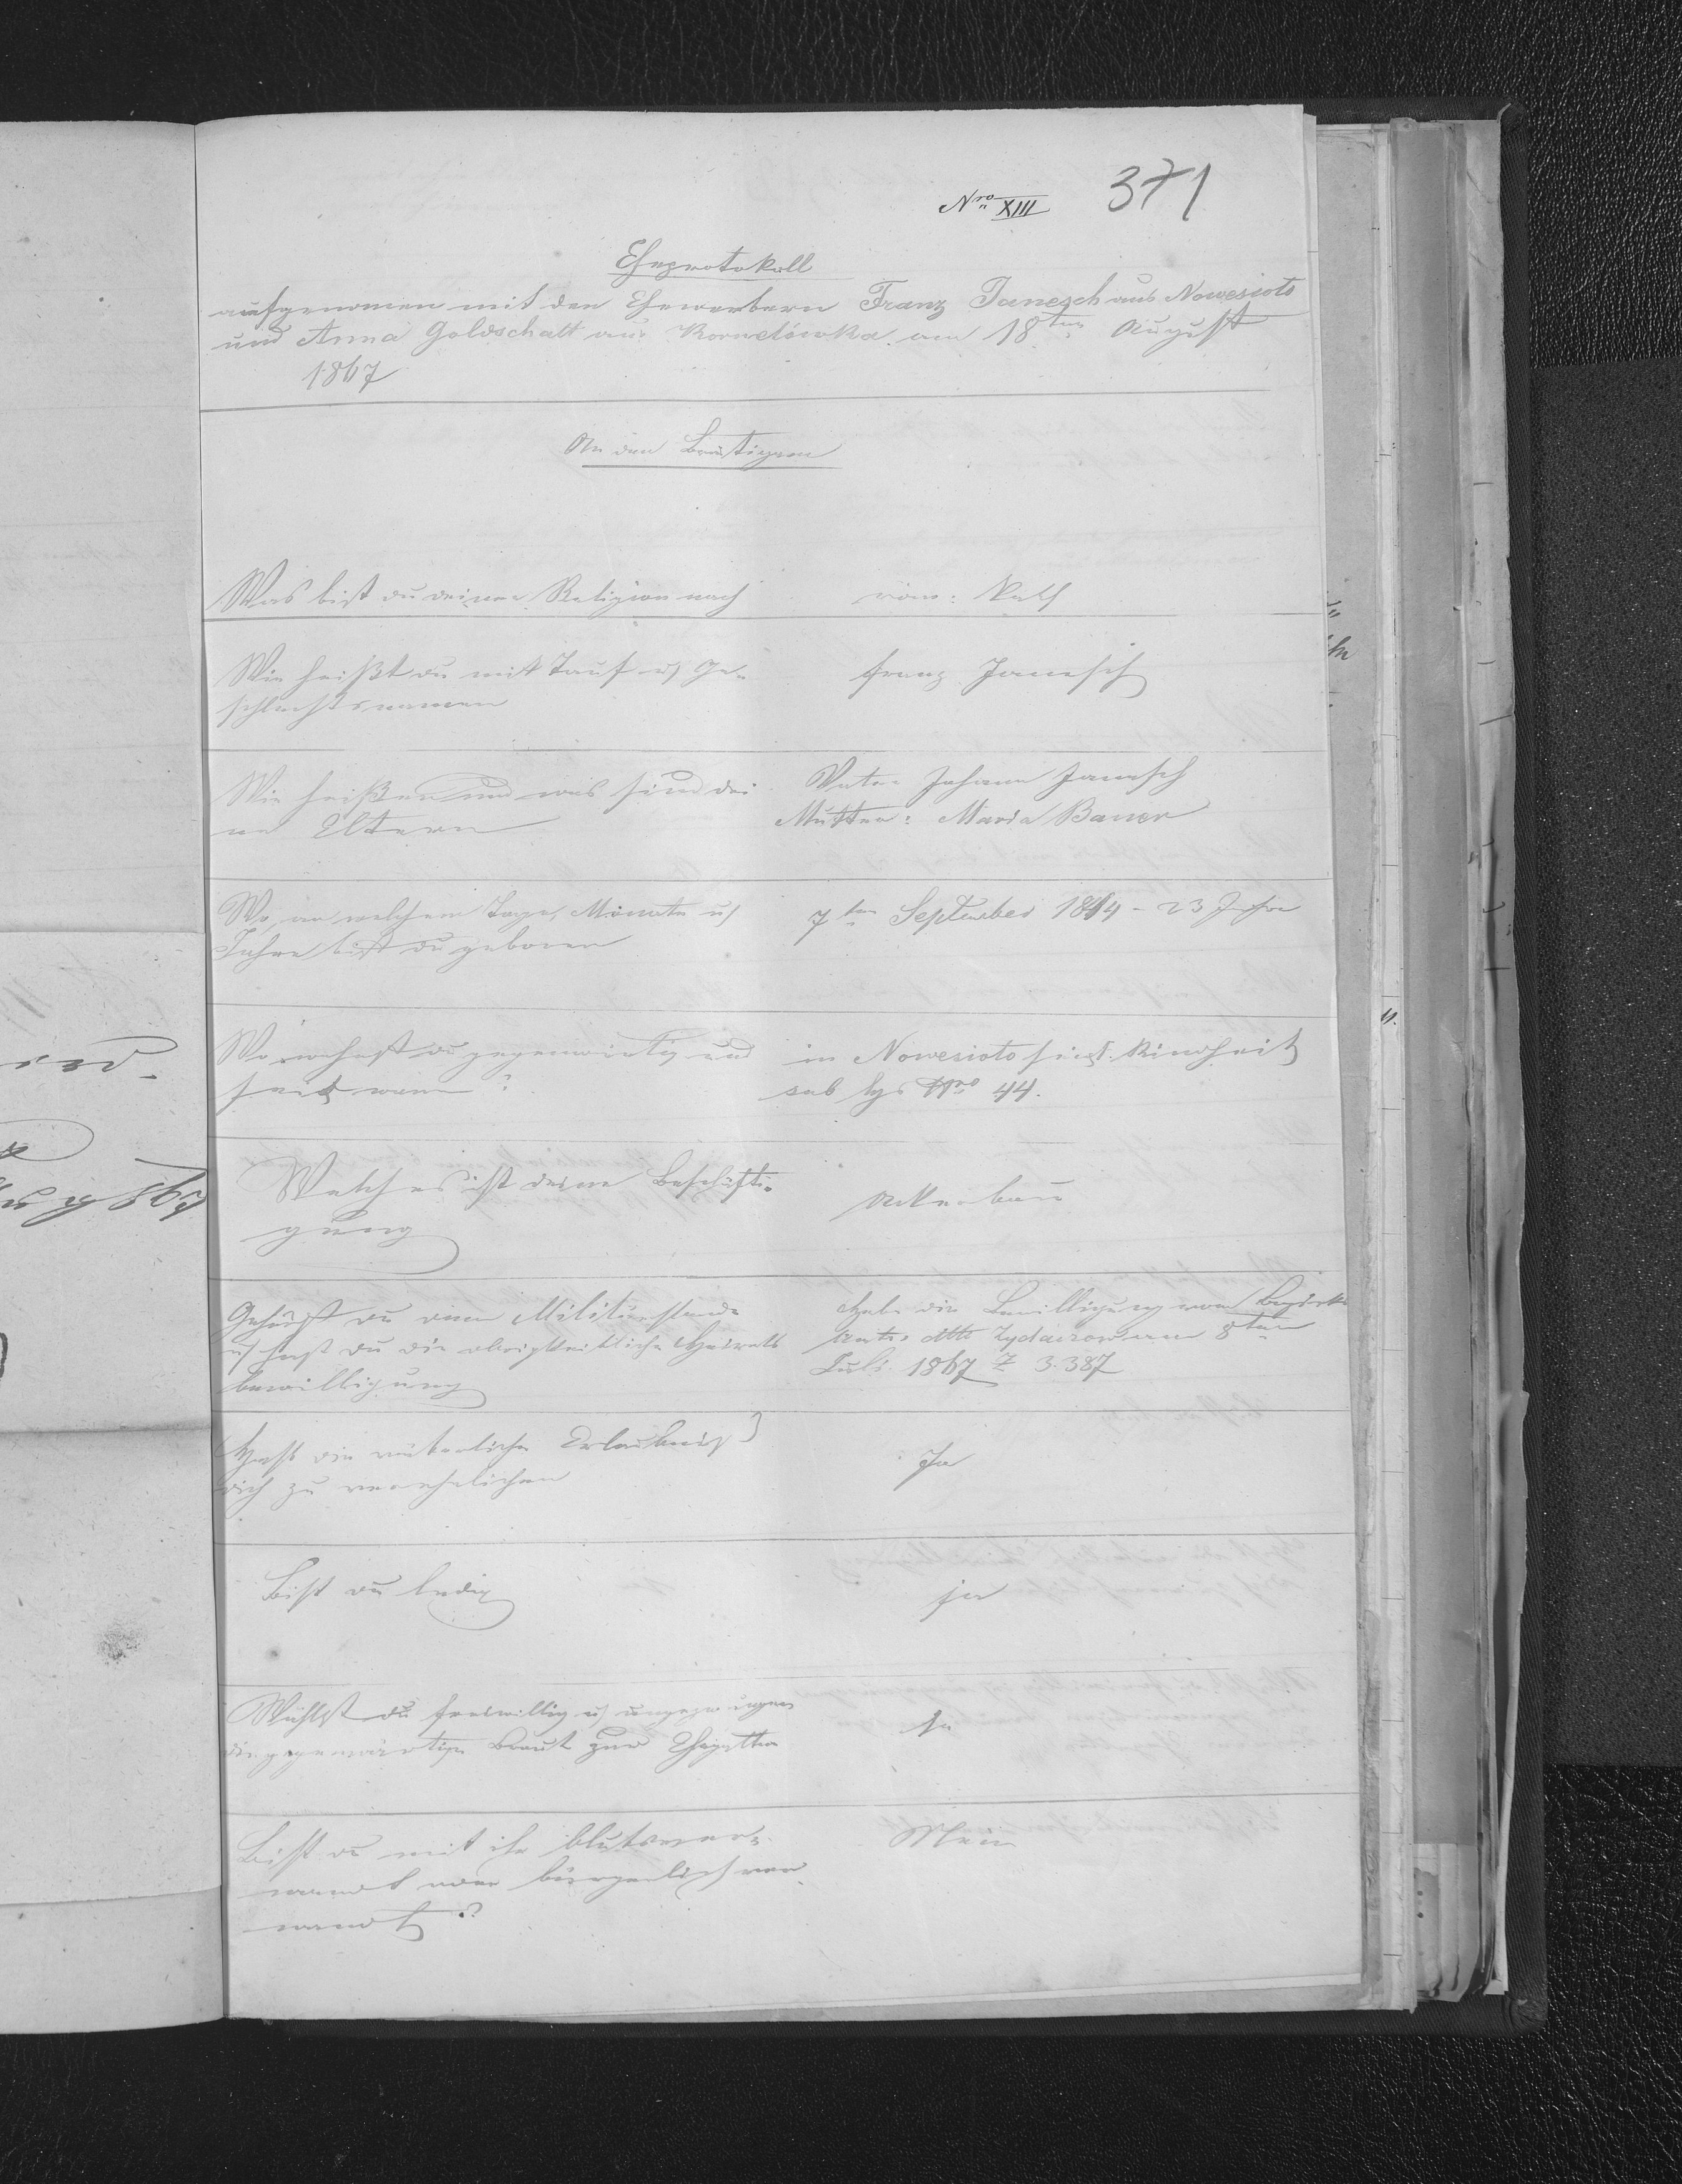 Nro XIII 371
Eheprotokoll
aufgenomen mit den Ehewerbern Franz Janesch aus Nowesioto
und Anna Goldschalt aus Kornelówka am 18ten August
1867
An den Bräutigam
Was bist du deiner Religion nach
röm: kath
Wie heißt du mit Tauf u Ge-
schlechtsnamen
Franz Janesch
Wie heißen und was sind dei
ne Eltern
Vater Johann Janesch
Mutter: Maria Bauer
Wo, an welchem Tage, Monate u
Jahre bist du geboren
7ten September 1844 - 23 Jahre
Wo wohnst du gegenwärtig und
seit wann?
in Nowesioto seit Kindheit
sub Nro 44.
Welches ist deine Beschäfti-
gung
Ackerbau
Gehörst du dem Militärstande
u hast du die obrigkeitliche Heirats
bewilligung
Habe die Bewilligung vom Bezirks
Amte dtto Zydaczow am 8ten
Juli 1867 Z 3387
Hast die väterliche Erlaubniß
dich zu verehelichen
Ja
Bist du ledig
ja
Wählst du freiwillig u ungezwungen
die gegenwärtige Braut zur Ehegattin
Ja
Bist du mit ihr blutsver-
wandt oder bürgerlich ver
wandt?
Nein